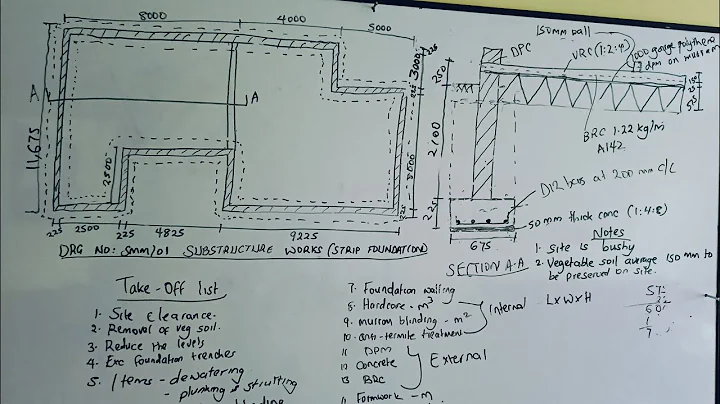 8000 4000 5000
225
3000
225
A A
11,675
2500
8000
225
225 2500 225 4825 9225
DRG NO: SMM/01 SUBSTRUCTURE WORKS (STRIP FOUNDATION)
150mm
DPC
VRC (1:2:4)
1000 gauge polythene
dpm on murram
250
150
25
2100
BRC 1.22 kg/m
A142
D12 bars at 200 mm c/c
225
50 mm thick conc (1:4:8)
675
SECTION A-A
Notes
1. Site is bushy
2. Vegetable soil average 150 mm to
be preserved on site.
TAKE-OFF LIST
1. Site clearance.
2. Removal of veg soil.
3. Reduce the levels
4. Exc foundation trenches
5. Items - dewatering
- plunking & strutting
7. Foundation walling
8. Hardcore - m³
9. murram blinding - m²
10. anti-termite treatment
Internal LxWxH
11 DPM
12 Concrete
13 BRC
External
Formwork - m
60
1
7